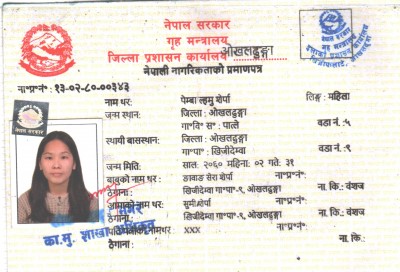 नेपाल सरकार
गृह मन्त्रालय
जिल्ला प्रशासन कार्यालय ओखलढुङ्गा
नेपाली नागरिकताको प्रमाणपत्र
ना॰प्र॰नं॰ १३-०२-८०-००३४३
नाम थर: पेम्बा ल्हमु शेर्पा लिङ्ग: महिला
जन्म स्थान: जिल्ला : ओखलढुङ्गा
गा॰वि॰ स॰ : पात्ले वडा नं.: ५
स्थायी बासस्थान: जिल्ला : ओखलढुङ्गा
गा॰पा॰ : खिजीदेम्बा वडा नं.: ९
जन्म मिति: साल: २०६० महिना: ०२ गते: ३१
बाबुको नाम थर: डावाङ सेरा शेर्पा ना॰प्र॰नं॰:
ठेगाना: खिजीदेम्बा गा॰पा॰-९, ओखलढुङ्गा ना. कि.: वंशज
आमाको नाम थर: सुमी शेर्पा ना॰प्र॰नं॰:
ठेगाना: खिजीदेम्बा गा॰पा॰-९, ओखलढुङ्गा ना. कि.: वंशज
नामथर: XXX ना॰प्र॰नं॰:
ठेगाना: ना. कि.:
नेपाल सरकार
का.मु. शाखा अधिकृत
नेपाल सरकार
गृह मन्त्रालय